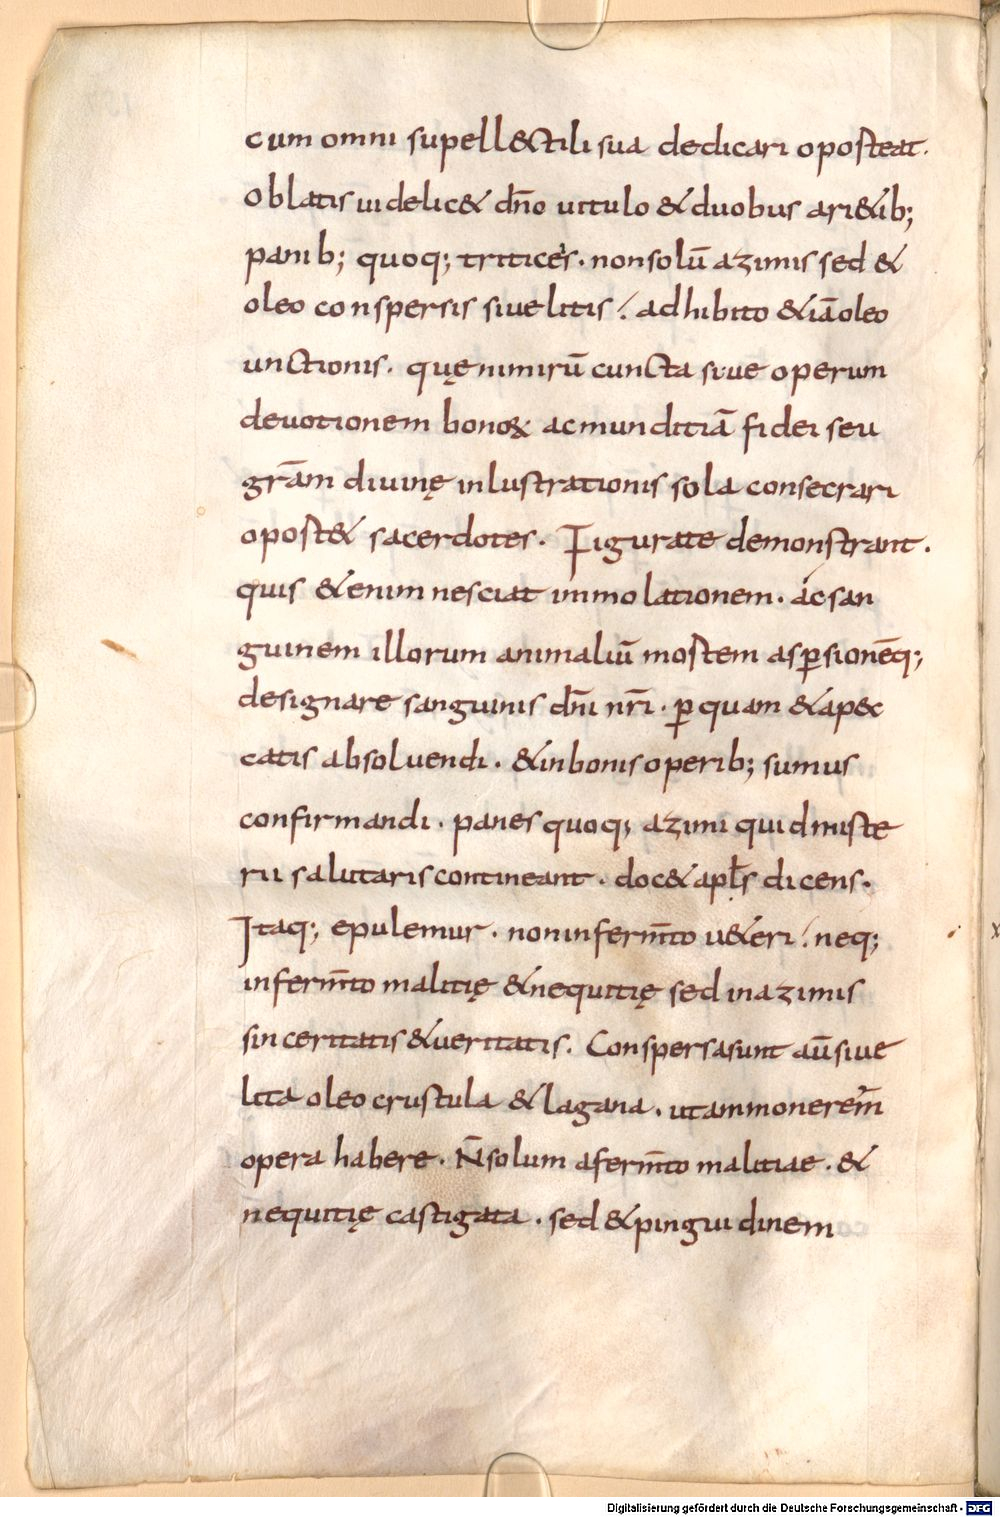 cum omni supell&ctili sua dedicari oporteat.
Oblatis uidelic& dn̄o uitulo & duobus ari&ib;
panib; quoq; triticeis. non solū azimis sed &
oleo conspersis siue litis. adhibito &iā oleo
unctionis. quę nimirū cuncta siue operum
deuotionem bono& ac munditiā fidei seu
grām diuinę inlustrationis sola consecrari
oport& sacerdotes. Figurate demonstrant.
quis &enim nesciat immolationem. ac san
guinem illorum animaliū mortem aspersionēq;
designare sanguinis dn̄i nr̄i. per quam & a pec
catis absoluendi. & in bonis operib; sumus
confirmandi. panes quoq; azimi quid miste
rii salutaris contineant. doc& apłs dicens.
Itaq; epulemur. non in ferm̄to u&eri. neq;
in ferm̄to malitię & nequitię sed in azimis
sinceritatis & ueritatis. Conspersa sunt aū siue
lita oleo crustula & lagana. ut ammonerem̄
opera habere. N̄ solum a ferm̄to malitiae. &
nequitię castigata. sed & pinguidinem
Digitalisierung gefördert durch die Deutsche Forschungsgemeinschaft - DFG